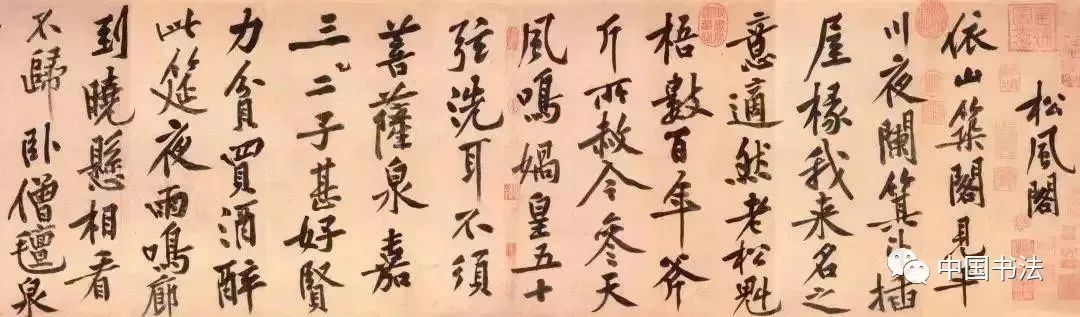 松風閣
依山築閣見平
川夜闌箕斗插
屋椽我来名之
意適然老松魁
梧數百年斧
斤所赦今參天
風鳴媧皇五十
弦洗耳不須
菩薩泉嘉
三二子甚好賢
力貧買酒醉
此筵夜雨鳴廊
到曉懸相看
不歸卧僧氈泉
中国书法